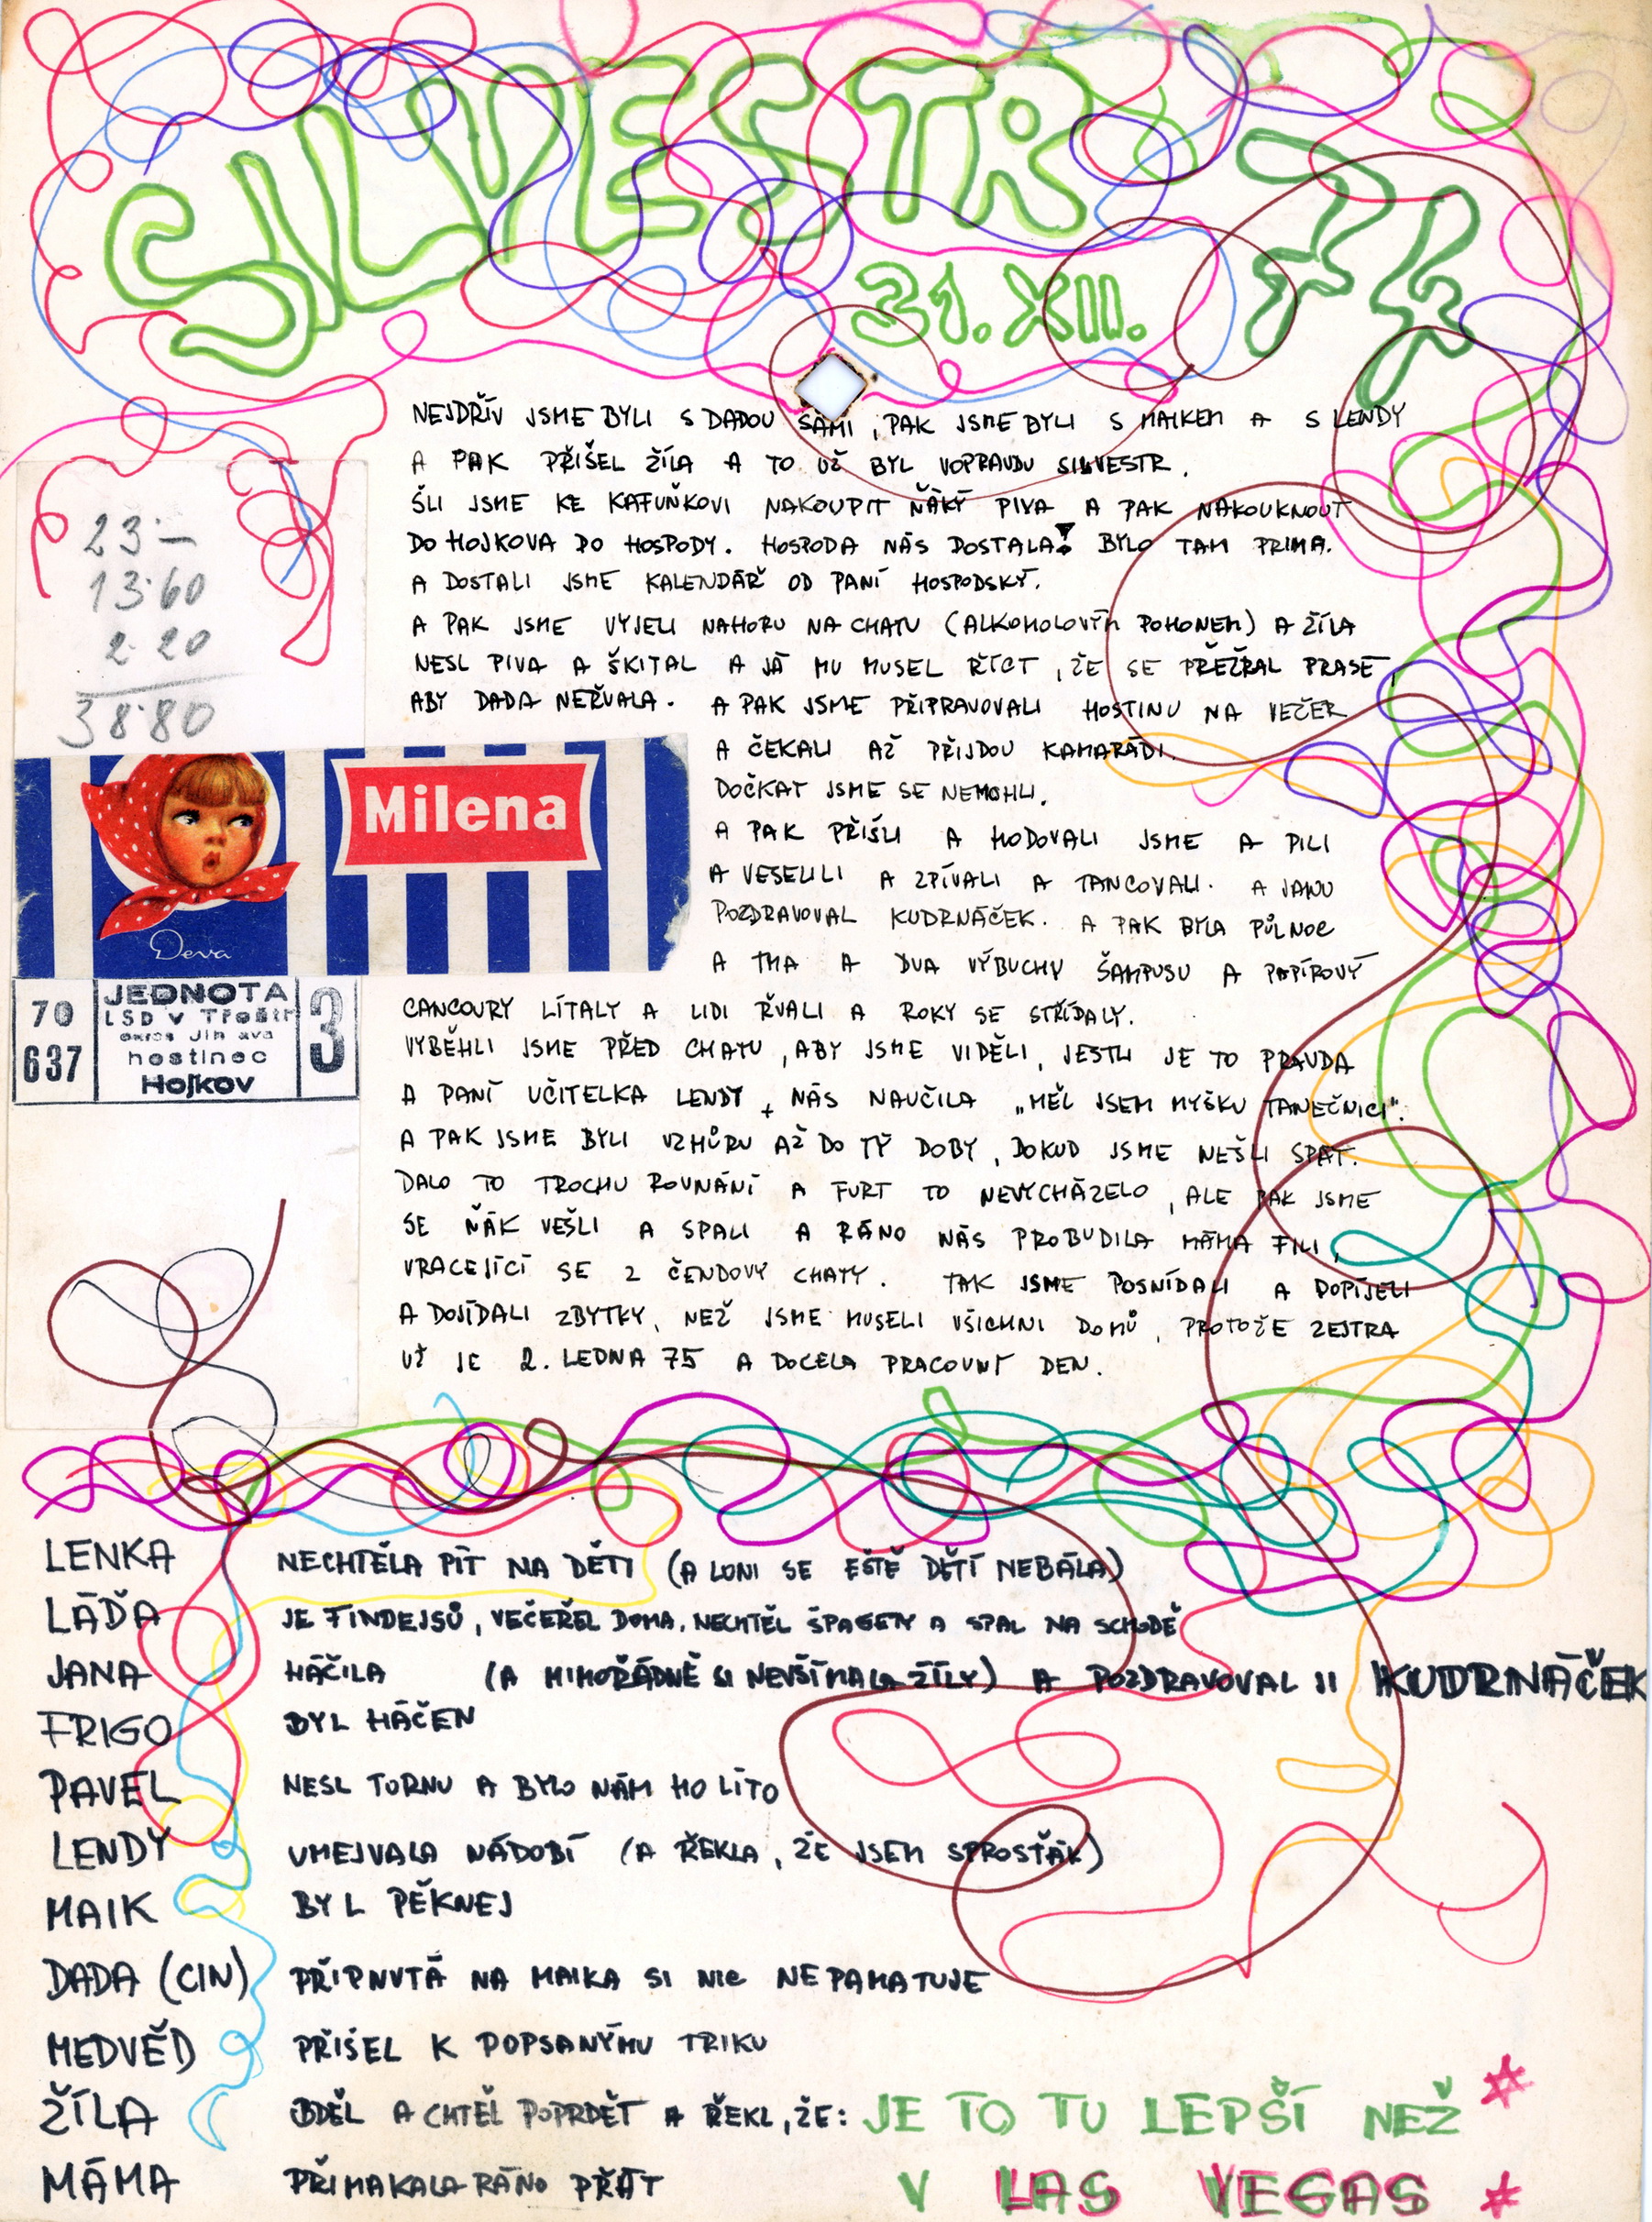 SILVESTR 74
31. XII.
NEJDŘÍV JSME BYLI S DADOU SAMI, PAK JSME BYLI S MAIKEM A S LENDY
A PAK PŘIŠEL ŽÍLA A TO UŽ BYL VOPRAVDU SILVESTR.
ŠLI JSME KE KAFUŇKOVI NAKOUPIT ŇÁKÝ PIVA A PAK NAKOUKNOUT
DO HOJKOVA DO HOSPODY. HOSPODA NÁS DOSTALA! BYLO TAM PRIMA.
A DOSTALI JSME KALENDÁŘ OD PANÍ HOSPODSKÝ.
A PAK JSME VYJELI NAHORU NA CHATU (ALKOHOLOVÝM POHONEM) A ŽÍLA
NESL PIVA A ŠKITAL A JÁ MU MUSEL ŘÍCT, ŽE SE PŘEŽRAL PRASE,
ABY DADA NEŘVALA. A PAK JSME PŘIPRAVOVALI HOSTINU NA VEČER
A ČEKALI AŽ PŘIJDOU KAMARÁDI.
DOČKAT JSME SE NEMOHLI.
A PAK PŘIŠLI A HODOVALI JSME A PILI
A VESELILI A ZPÍVALI A TANCOVALI. A JANU
POZDRAVOVAL KUDRNÁČEK. A PAK BYLA PŮLNOC
A TMA A DVA VÝBUCHY ŠAMPUSU A PAPÍROVÝ
CANCOURY LÍTALY A LIDI ŘVALI A ROKY SE STŘÍDALY.
VYBĚHLI JSME PŘED CHATU, ABY JSME VIDĚLI, JESTLI JE TO PRAVDA
A PANÍ UČITELKA LENDY + NÁS NAUČILA „MĚL JSEM MYŠKU TANEČNICI".
A PAK JSME BYLI VZHŮRU AŽ DO TÝ DOBY, DOKUD JSME NEŠLI SPÁT.
DALO TO TROCHU ROVNÁNÍ A FURT TO NEVYCHÁZELO, ALE PAK JSME
SE ŇÁK VEŠLI A SPALI A RÁNO NÁS PROBUDILA MÁMA FILI,
VRACEJÍCÍ SE Z ČENDOVY CHATY. TAK JSME POSNÍDALI A DOPÍJELI
A DOJÍDALI ZBYTKY, NEŽ JSME MUSELI VŠICHNI DOMŮ, PROTOŽE ZEJTRA
UŽ JE 2. LEDNA 75 A DOCELA PRACOVNÍ DEN.
23 —
13·60
2·20
38·80
Milena
Deva
70
637
JEDNOTA
LSD v Třešti
okres Jihlava
hostinec
Hojkov
3
LENKA NECHTĚLA PÍT NA DĚTI (A LONI SE EŠTĚ DĚTÍ NEBÁLA)
LÁĎA JE FINDEJSŮ, VEČEŘEL DOMA, NECHTĚL ŠPAGETY A SPAL NA SCHODĚ
JANA HÁČILA (A MIMOŘÁDNĚ SI NEVŠÍMALA ŽÍLY) A POZDRAVOVAL JI KUDRNÁČEK
FRIGO BYL HÁČEN
PAVEL NESL TORNU A BYLO NÁM HO LÍTO
LENDY UMEJVALA NÁDOBÍ (A ŘEKLA, ŽE JSEM SPROSŤÁK)
MAIK BYL PĚKNEJ
DADA (CIN) PŘIPNUTÁ NA MAIKA SI NIC NEPAMATUJE
MEDVĚD PŘIŠEL K POPSANÝMU TRIKU
ŽÍLA BDĚL A CHTĚL POPRDĚT A ŘEKL, ŽE: JE TO TU LEPŠÍ NEŽ *
V LAS VEGAS *
MÁMA PŘIMAKALA RÁNO PŘÁT